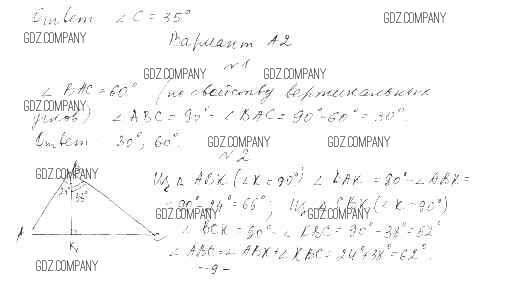 Ответ ∠C = 35°
GDZ.COMPANY
GDZ.COMPANY
Вариант А2
№1
GDZ.COMPANY
GDZ.COMPANY
∠BAC = 60° (по свойству вертикальных
GDZ.COMPANY
углов) ∠ABC = 90° - ∠BAC = 90° - 60° = 30°.
Ответ 30°, 60°.
GDZ.COMPANY
GDZ.COMPANY
№2
GDZ.COMPANY
Из △ABK (∠K = 90°) ∠BAK = 90° - ∠ABK =
24° 38°
= 90° - 24° = 66°; Из △CBK (∠K = 90°)
GDZ.COMPANY
GDZ.COMPANY
∠BCK = 90° - ∠KBC = 90° - 38° = 52°
A
K
∠ABC = ∠ABK + ∠KBC = 24° + 38° = 62°.
GDZ.COMPANY
- 9 -